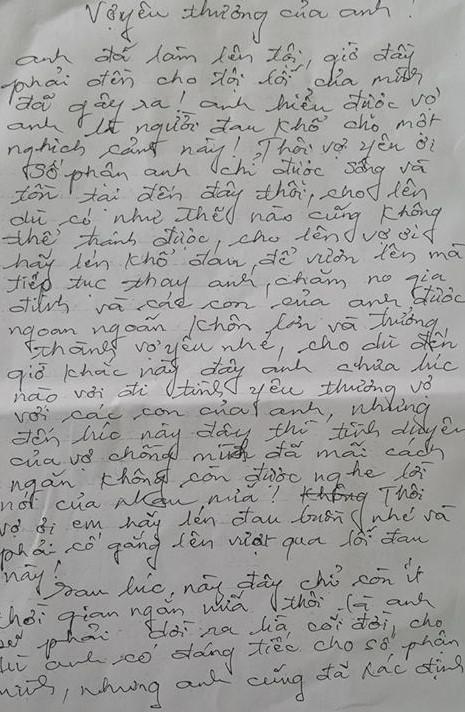 Vợ yêu thương của anh!
anh đã làm lên tội, giờ đây
phải đền cho tội lỗi của mình
đã gây ra! anh hiểu được vợ
anh là người đau khổ cho một
nghịch cảnh này! Thôi vợ yêu ơi
số phận anh chỉ được sống và
tồn tại đến đây thôi, cho lên
dù có như thế nào cũng không
thể tránh được, cho lên vợ ơi
hãy lén khổ đau, để vươn lên mà
tiếp tục thay anh, chăm no gia
đình và các con của anh được
ngoan ngoãn khôn lớn và trưởng
thành vợ yêu nhé, cho dù đến
giờ khắc này đây anh chưa lúc
nào vơi đi tình yêu thương vợ
với các con của anh, nhưng
đến lúc này đây thì tình duyên
của vợ chồng mình đã mãi cách
ngăn không còn được nghe lời
nói của nhau nữa! Không Thôi
vợ ơi em hãy lén đau buồn nhé và
phải cố gắng lên vượt qua lỗi đau
này!
sau lúc này đây chỉ còn ít
thời gian ngắn nữa thôi là anh
sẽ phải dời ra xa cõi đời, cho
dù anh có đáng tiếc cho số phận
mình, nhưng anh cũng đã xác định